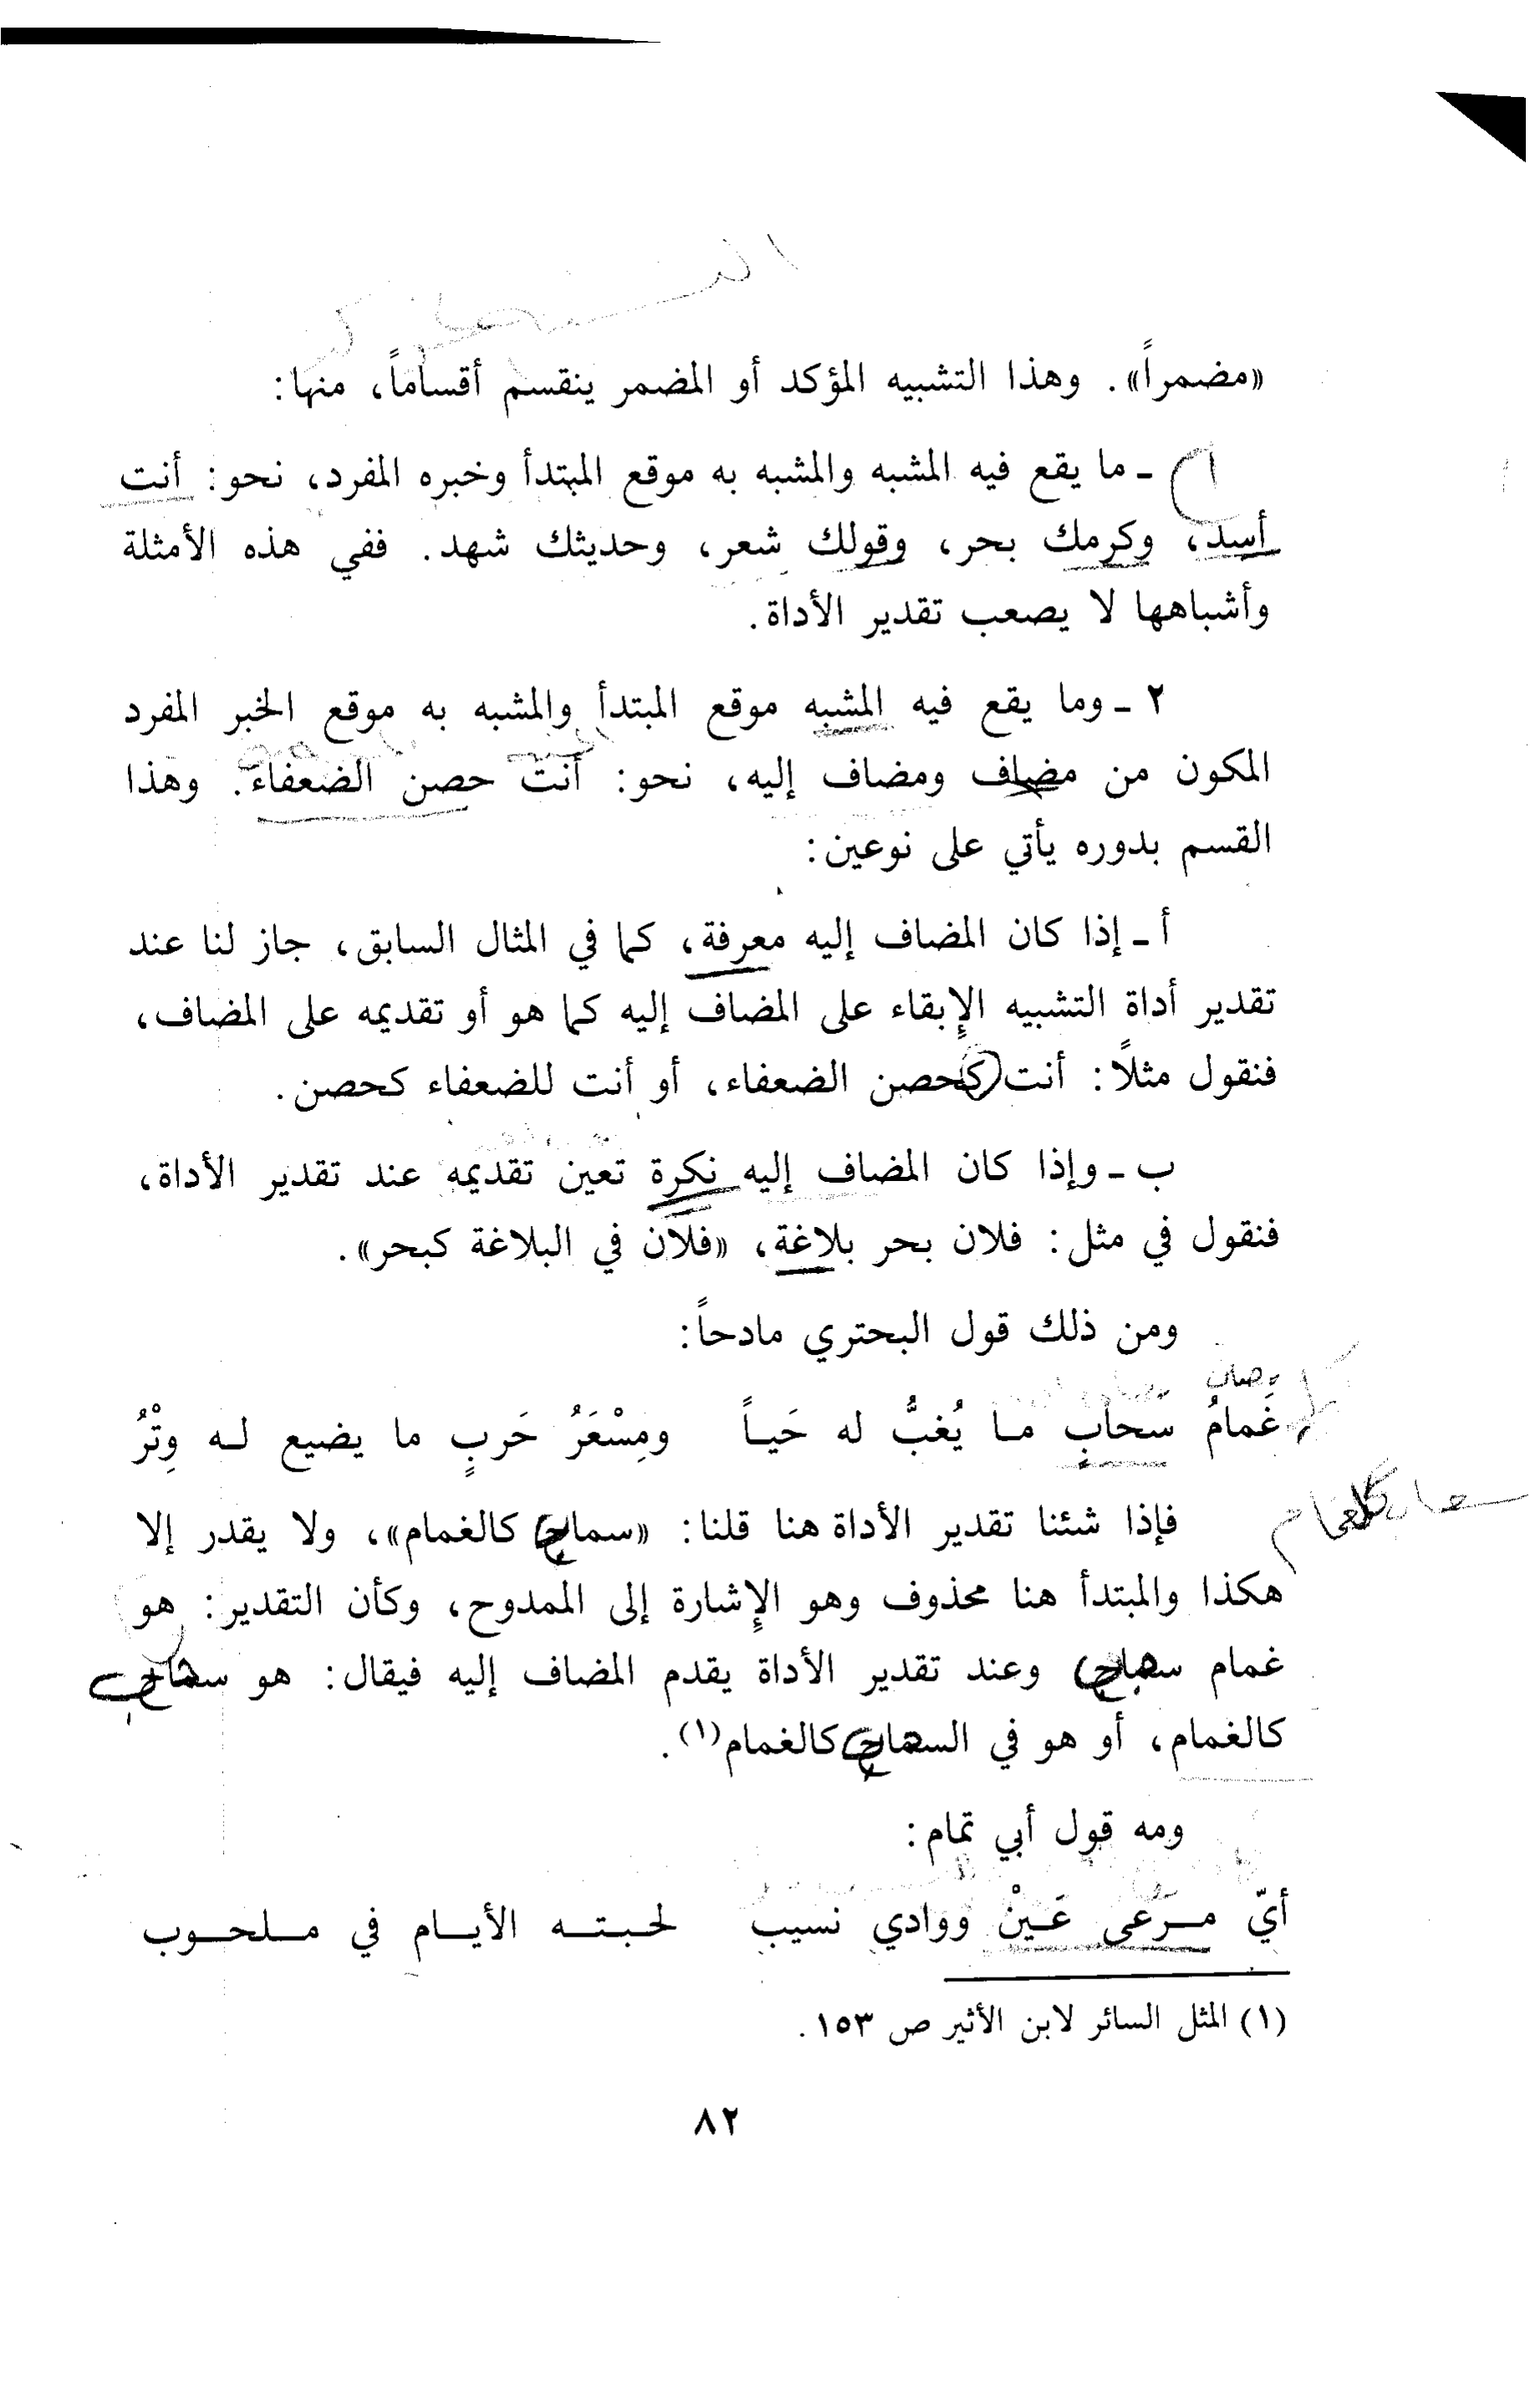 «مضمراً». وهذا التشبيه المؤكد أو المضمر ينقسم أقساماً، منها:
١ ـ ما يقع فيه المشبه والمشبه به موقع المبتدأ وخبره المفرد، نحو: أنت
أسد، وكرمك بحر، وقولك شعر، وحديثك شهد. ففي هذه الأمثلة
وأشباهها لا يصعب تقدير الأداة.
٢ ـ وما يقع فيه المشبه موقع المبتدأ والمشبه به موقع الخبر المفرد
المكون من مضاف ومضاف إليه، نحو: أنت حصن الضعفاء. وهذا
القسم بدوره يأتي على نوعين:
أ ـ إذا كان المضاف إليه معرفة، كما في المثال السابق، جاز لنا عند
تقدير أداة التشبيه الإبقاء على المضاف إليه كما هو أو تقديمه على المضاف،
فنقول مثلاً: أنت كحصن الضعفاء، أو أنت للضعفاء كحصن.
ب ـ وإذا كان المضاف إليه نكرة تعين تقديمه عند تقدير الأداة،
فنقول في مثل: فلان بحر بلاغة، «فلان في البلاغة كبحر».
ومن ذلك قول البحتري مادحاً:
غَمامُ سَحابٍ ما يُغبُّ له حَياً ومِسْعَرُ حَربٍ ما يضيع له وِتْرُ
فإذا شئنا تقدير الأداة هنا قلنا: «سماح كالغمام»، ولا يقدر إلا
هكذا والمبتدأ هنا محذوف وهو الإشارة إلى الممدوح، وكأن التقدير: هو
غمام سماح وعند تقدير الأداة يقدم المضاف إليه فيقال: هو سماح
كالغمام، أو هو في السماح كالغمام(١).
ومه قول أبي تمام:
أيّ مـرْعى عَـيْنْ ووادي نسيب لحبته الأيام في ملحوب
(١) المثل السائر لابن الأثير ص ١٥٣.
٨٢